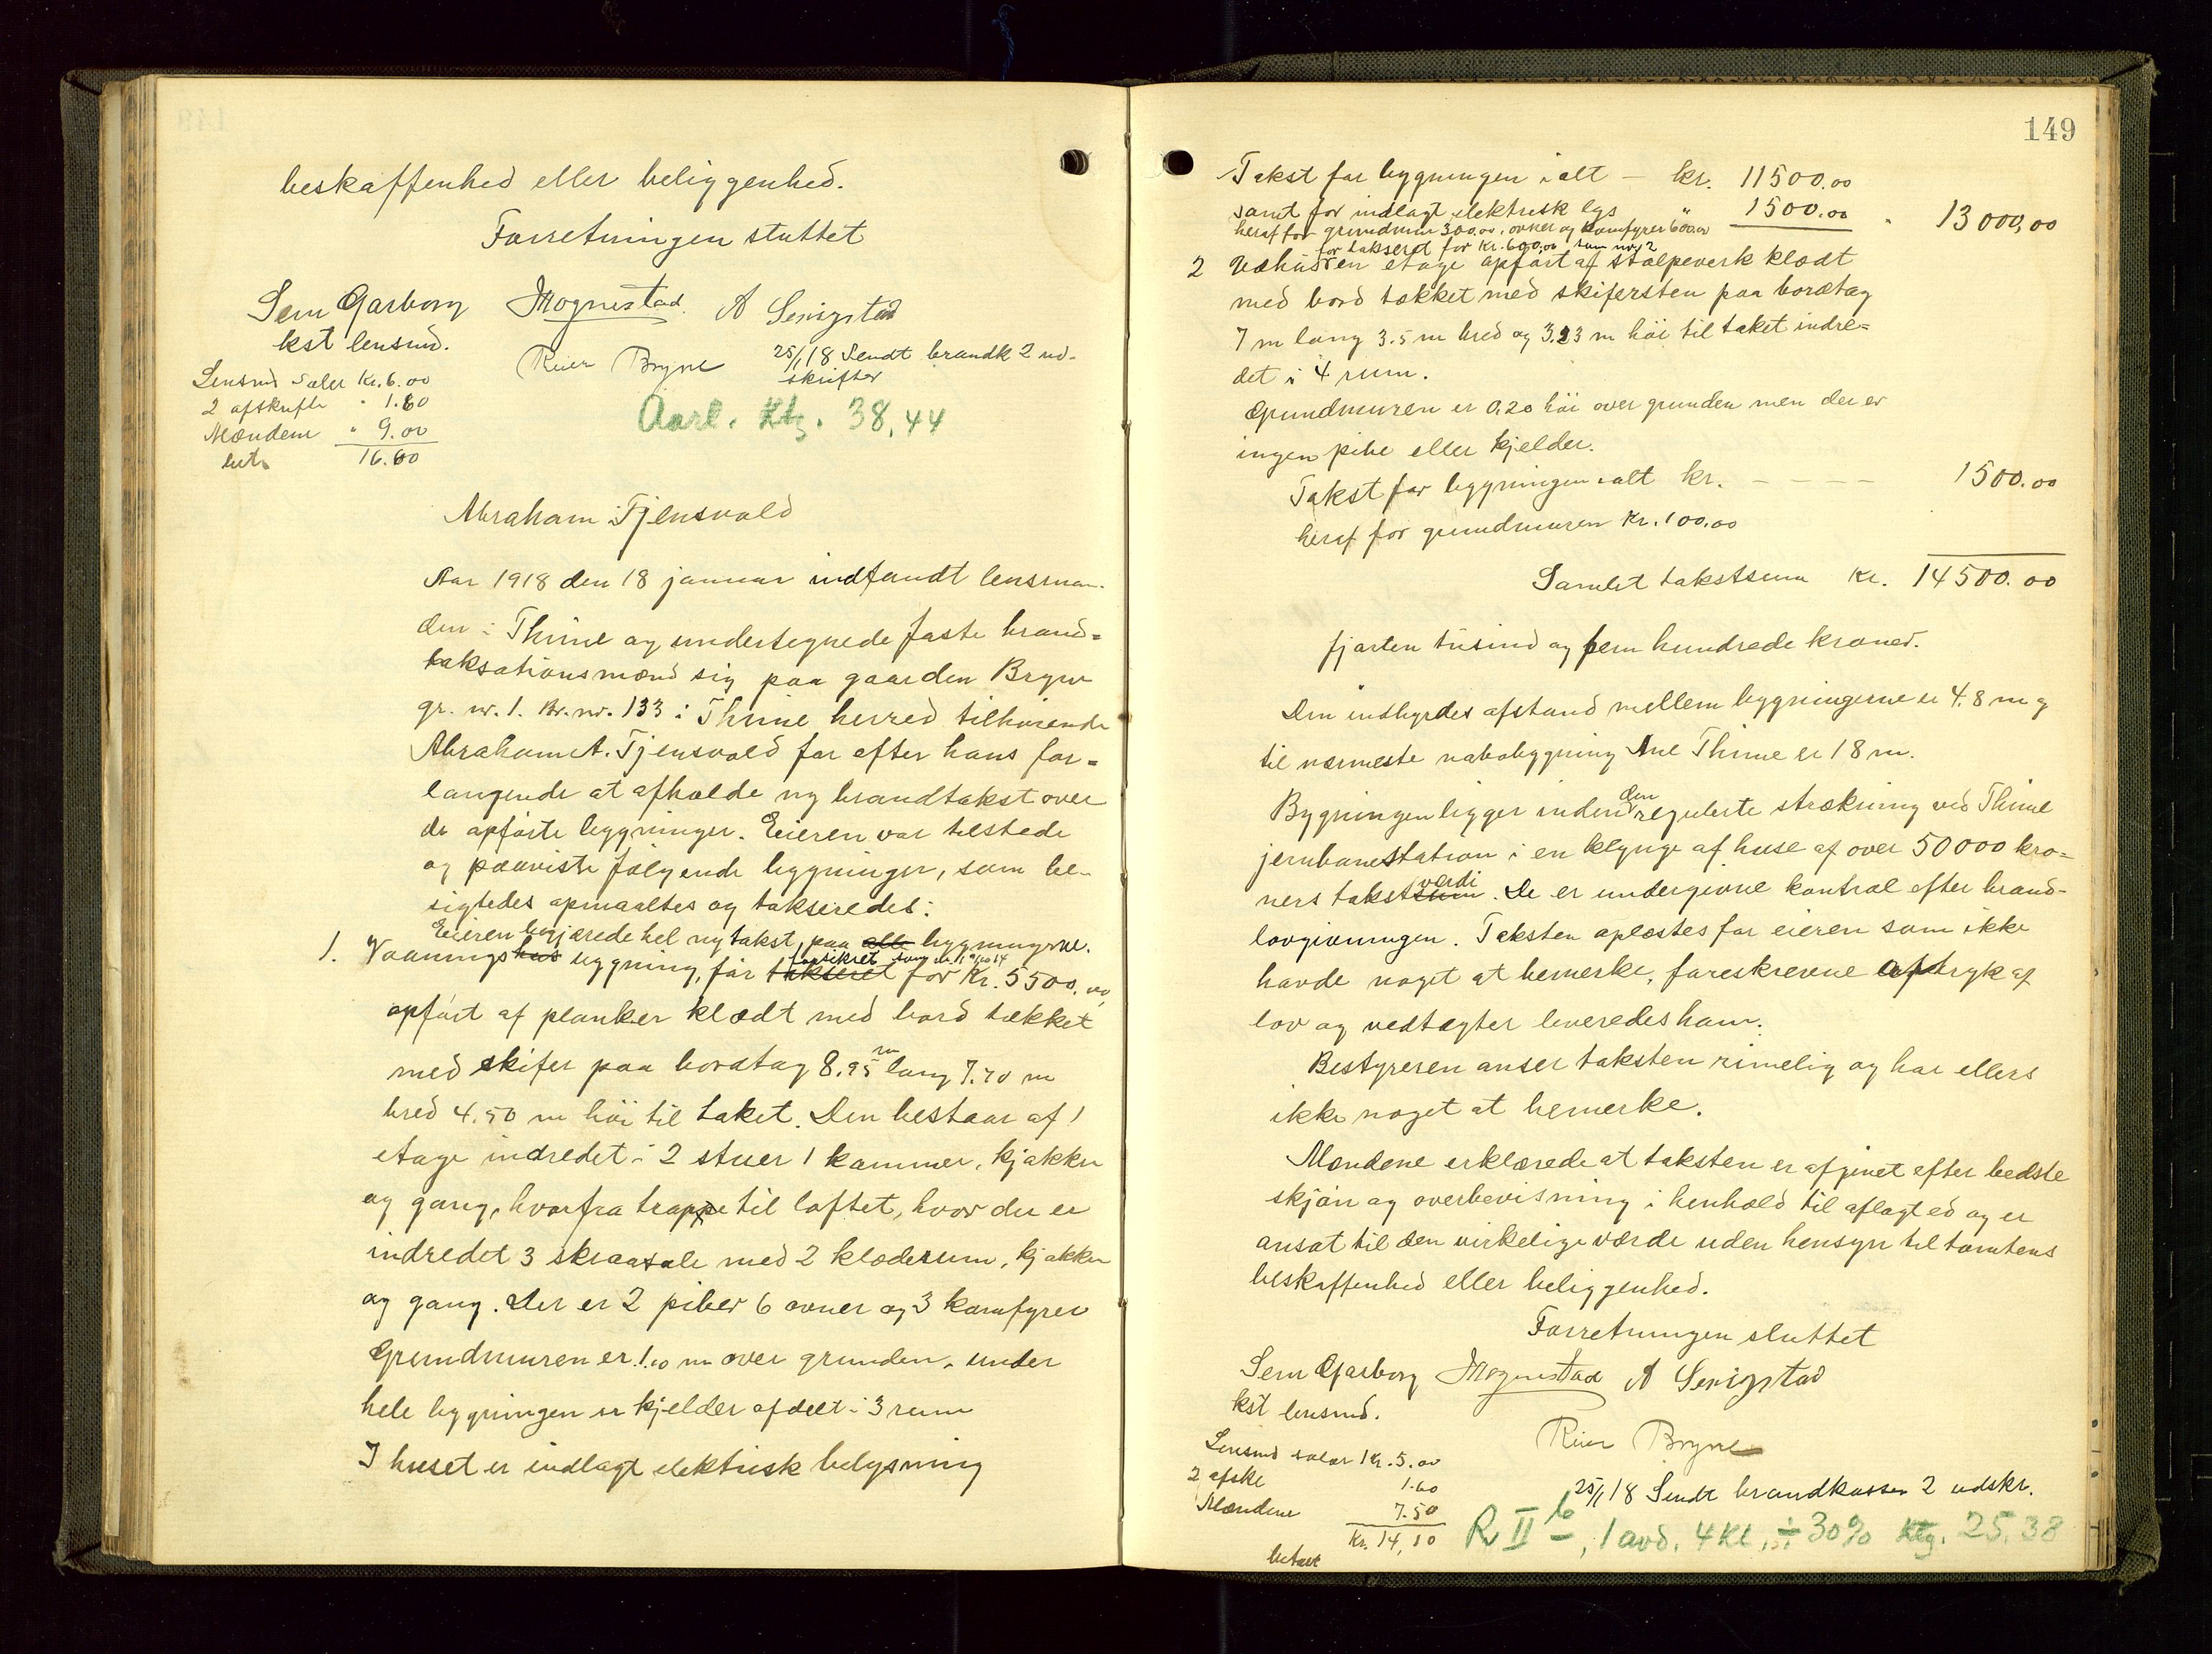 beskaffenhed eller beliggenhed.
Forretningen sluttet
Sem Garborg Mognestad. A Serigstad
kst lensmd.
Reier Bryne 25/1 18 Sendt brandk 2 ud-
skrifter
Lensmd salær Kr. 6.00
2 afskrifter " 1.60
Mændene " 9.00
bet. 16.60
Aarl. Ktg. 38,44
Abraham Tjensvold
Aar 1918 den 18 januar indfandt lensman-
den i Thime og undertegnede faste brand=
taksationsmænd sig paa gaarden Bryne
gr. nr. 1. Br. nr. 133 i Thime herred tilhørende
Abraham A. Tjensvold for efter hans for=
langende at afholde ny brandtakst over
de opførte bygninger. Eieren var tilstede
og paaviste følgende bygninger, som be-
sigtedes opmaaltes og takseredes:
Eieren begjærede hel ny takst, paa alle bygningerne.
1. Vaanings hus bygning, før takseret forsikret som nr. 1 for Kr. 5500.00,
opført af planker klædt med bord tækket
med skifer paa bordtag 8.95 m lang 7.70 m
bred 4.50 m høi til taket. Den bestaar af 1
etage indredet i 2 stuer 1 kammer, kjøkken
og gang, hvorfra trappe til loftet, hvor der er
indredet 3 skraasale med 2 klæderum, kjøkken
og gang. Der er 2 piber 6 ovner og 3 komfyrer
Grundmuren er 1.10 m over grunden. under
hele bygningen er kjelder afdelt i 3 rum
I huset er indlagt elektrisk belysning
149
Takst for bygningen ialt - kr. 11500.00
samt for indlagt elektrisk lys " 1500.00 " 13000,00
heraf for grundmur 300.00, ovner og komfyrer 600.00
før takseret for kr. 600,00 som nr. 2
2 Uthus en etage opført af stolpeverk klædt
med bord tækket med skifersten paa bordtag
7 m lang 3.5 m bred og 3.23 m høi til taket indre=
det i 4 rum.
Grundmuren er 0,20 høi over grunden men der er
ingen pibe eller kjelder.
Takst for bygningen ialt kr. - - - - 1500.00
heraf for grundmuren Kr. 100.00
Samlet takstsum Kr. 14500.00
fjorten tusind og fem hundrede kroner.
Den indbyrdes afstand mellem bygningerne er 4.8 m og
til nærmeste nabobygning Ane Thime er 18 m.
Bygningen ligger inden den regulerte strækning ved Thime
jernbanestation i en klynge af huse af over 50000 kro=
ners takstsum verdi. De er undergivne kontrol efter brand-
lovgivningen. Taksten oplæstes for eieren som ikke
havde noget at bemerke, foreskrevne aftryk af
lov og vedtægter leveredes ham.
Bestyreren anser taksten rimelig og har ellers
ikke noget at bemerke.
Mændene erklærede at taksten er afgivet efter bedste
skjøn og overbevisning i henhold til aflagt ed og er
ansat til den virkelige værde uden hensyn til tomtens
beskaffenhed eller beliggenhed.
Forretningen sluttet
Sem Garborg Mognestad A Serigstad
kst lensmd.
Reier Bryne
Lensmd salær Kr. 5.00
2 afskr 1.60
Mændene 7.50
Kr. 14,10
betalt
25/1 18 Sendt brandkassen 2 udskr.
R II b, 1 avd. 4 Kl, ÷ 30% Ktg. 25,38